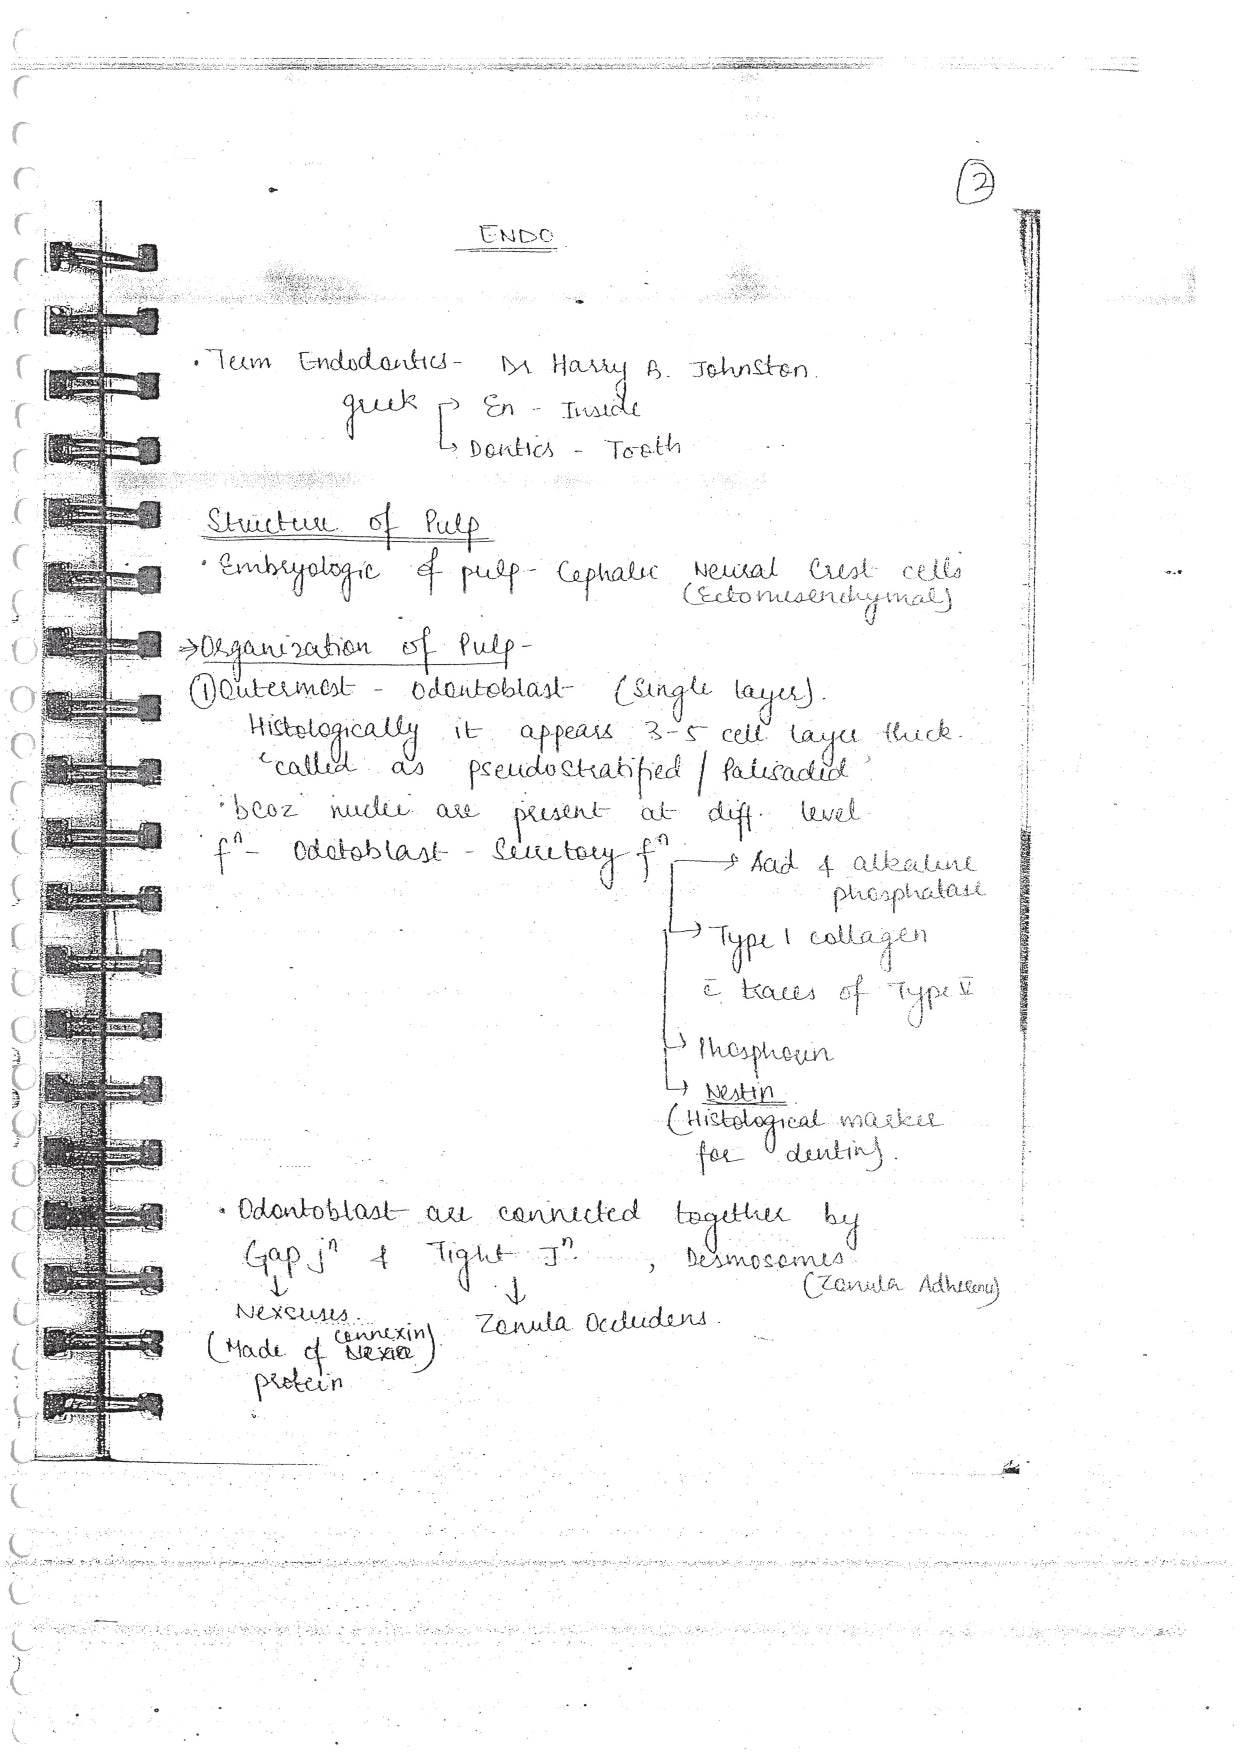 2
ENDO
• Term Endodontics - Dr Harry B. Johnston.
greek → En - Inside
↳ Dontics - Tooth
Structure of Pulp
• Embryologic of pulp - Cephalic Neural Crest cells
(Ectomesenchymal)
⇒ Organization of Pulp -
① Outermost - Odontoblast (Single layer).
Histologically it appears 3-5 cell layer thick.
'called as pseudostratified / Palisaded'
• bcoz nuclei are present at diff. level
fⁿ - Odotoblast - Secretory fⁿ → Acid & alkaline
phosphatase
→ Type I collagen
c̄ traces of Type V
→ Phosphorin
→ Nestin
(Histological marker
for dentin).
• Odontoblast are connected together by
Gap jⁿ & Tight Jⁿ , Desmosomes
↓ ↓ (Zonula Adherens)
Nexsuses. Zonula Occludens.
(Made of connexin)
protein